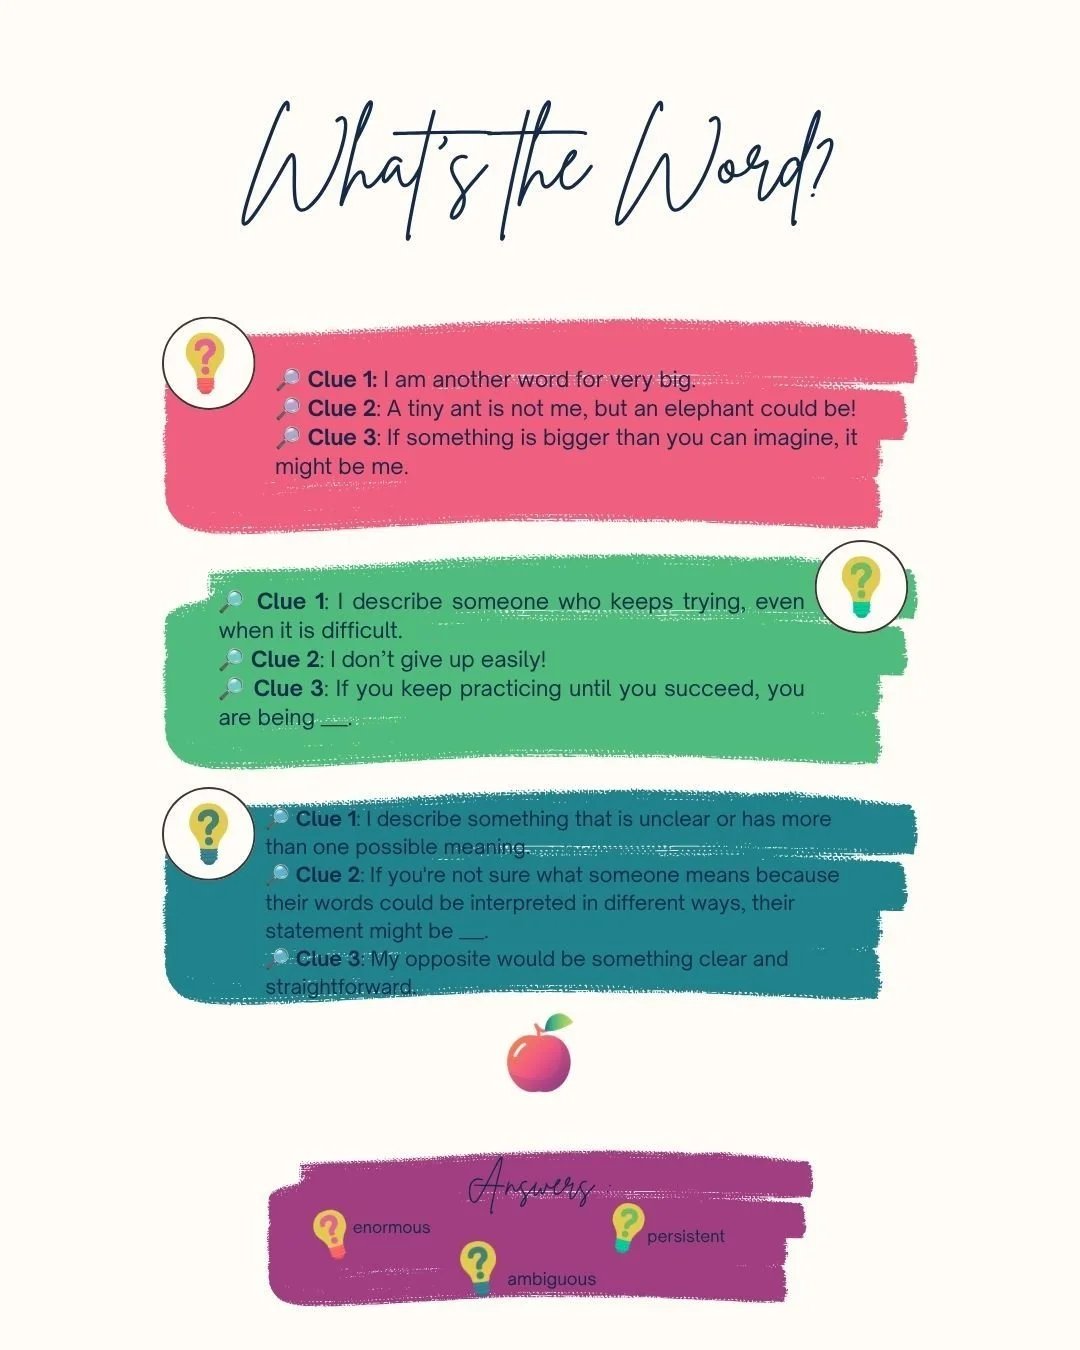 What's the Word?
🔎 Clue 1: I am another word for very big.
🔎 Clue 2: A tiny ant is not me, but an elephant could be!
🔎 Clue 3: If something is bigger than you can imagine, it
might be me.
🔎 Clue 1: I describe someone who keeps trying, even
when it is difficult.
🔎 Clue 2: I don’t give up easily!
🔎 Clue 3: If you keep practicing until you succeed, you
are being ___.
🔎 Clue 1: I describe something that is unclear or has more
than one possible meaning.
🔎 Clue 2: If you're not sure what someone means because
their words could be interpreted in different ways, their
statement might be ___.
🔎 Clue 3: My opposite would be something clear and
straightforward.
Answers
enormous
persistent
ambiguous